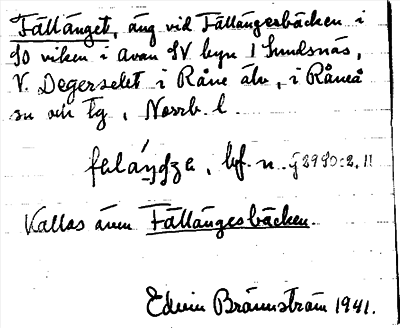 Fällänget, äng vid Fällängesbäcken i
SO viken i avan SV byn 1 Sundsnäs,
V. Degerselet i Råne älv, i Råneå
sn och tg, Norrb. l.
bf. n. 2.11
Kallas även Fällängesbäcken.
Edvin Brännström 1941.